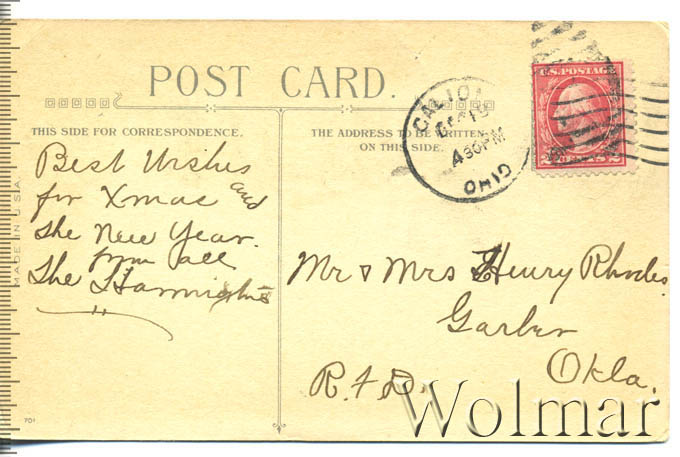 POST CARD.
THIS SIDE FOR CORRESPONDENCE.
THE ADDRESS TO BE WRITTEN
ON THIS SIDE.
MADE IN U.S.A.
Best Wishes
for Xmas and
the New Year.
from all
The
Mr & Mrs Henry Rhodes.
Garber
Okla.
R.F.D.
U.S. POSTAGE
2 CENTS 2
DEC
4 30 PM
OHIO
701
Wolmar